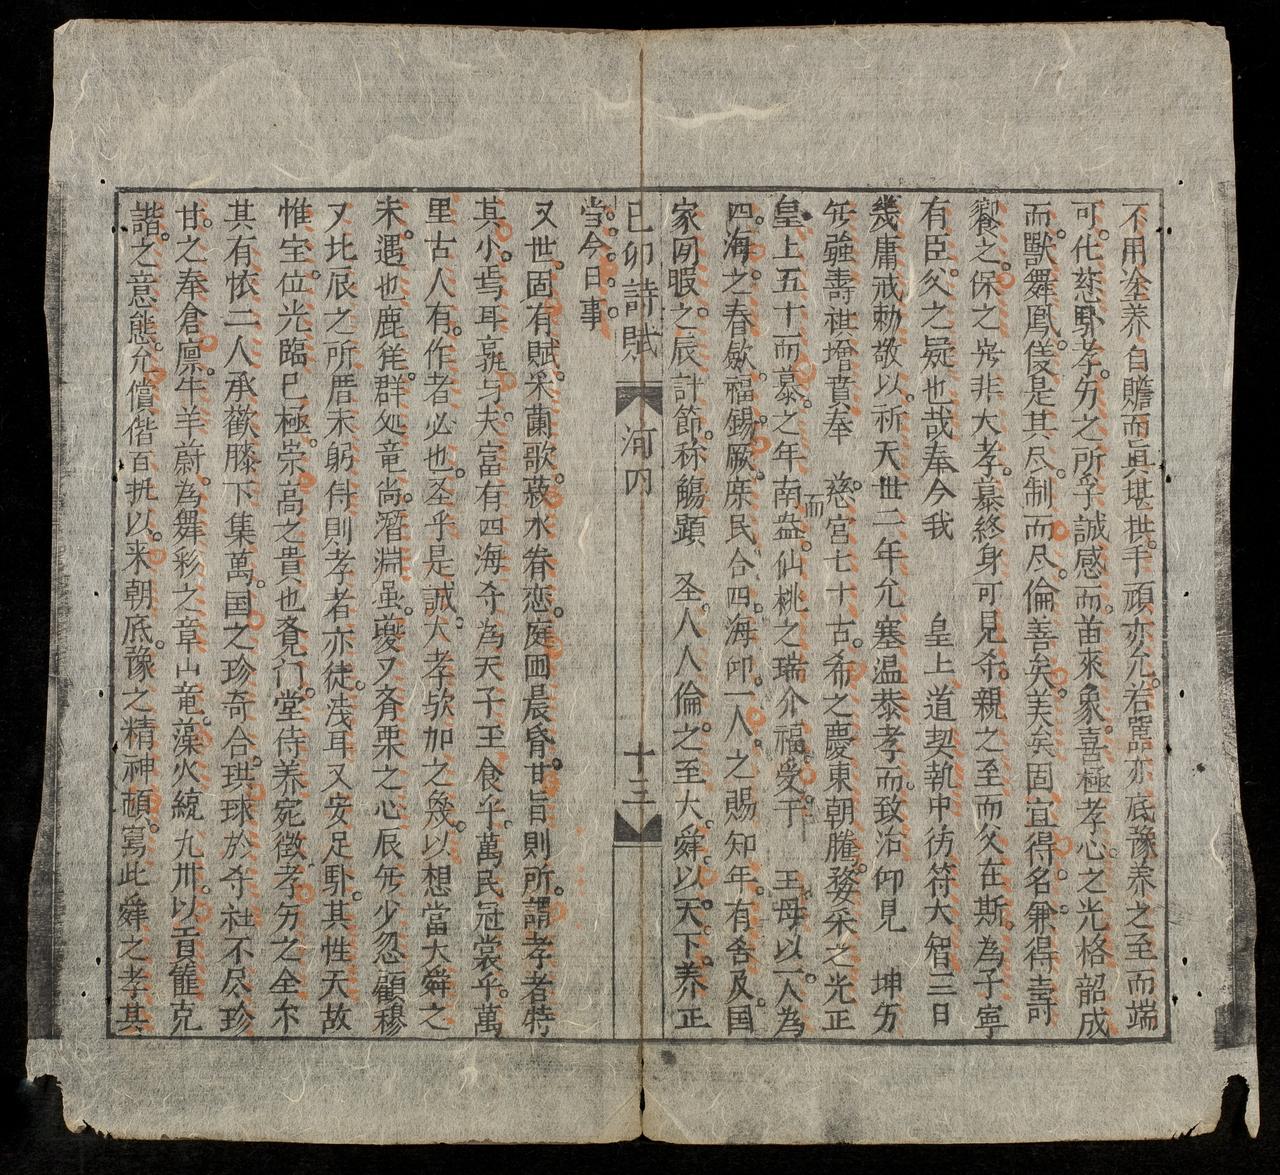 不用塗养自贍而眞堪拱手頑亦允若嚚亦底豫养之至而端
可化慈馭孝。方之所孚誠感而苗來象喜極孝心之光格韶成
而獸舞鳳儀是其尽制而尽倫善矣美矣固宜得名兼得壽詩
饗之保之宍非大孝慕終身可見夺親之至而父在斯為子寧
有臣父之疑也哉奉今我　皇上道契執中彷符大智三日
幾庸戒勅敬以祈天世二年允塞温恭孝而致治仰見　坤方
旡強壽祉增賁奉　慈宮七十古希之慶東朝騰婺采之光正
皇上五十而慕之年南盎仙桃之瑞介福受于　王母以一人為
而
四海之春斂福錫厥庶民合四海仰一人之賜知年有舍及国
家囘暇之辰計節称觴顕　圣人人倫之至大舜以天下养正
當今日事
己卯詩賦　河内　十三
又世固有賦采蘭歌菽水眷恋庭囲晨昏甘旨則所謂孝者特
其小焉耳孰与夫富有四海夺為天子玉食乎萬民冠裳乎萬
里古人有作者必也圣乎是誠大孝欤加之幾以想當大舜之
未遇也鹿㹠群处竜尚潛淵虽夔又斉栗之心辰旡少忽顧穆
又比辰之所厝未躬得則孝者亦徒浅耳又安足馭其性天故
惟宝位光臨巳極崇高之貴也斉門堂侍养宛徵孝方之全尓
其有恢二人承歡膝下集萬国之珍奇合珙球於夺社不尽珍
甘之奉倉廩牛羊蔚為舞彩之章山竜藻火統九卅以旨䉬克
諧之意態允償偕百扎以来朝底豫之精神頓寫此舜之孝其